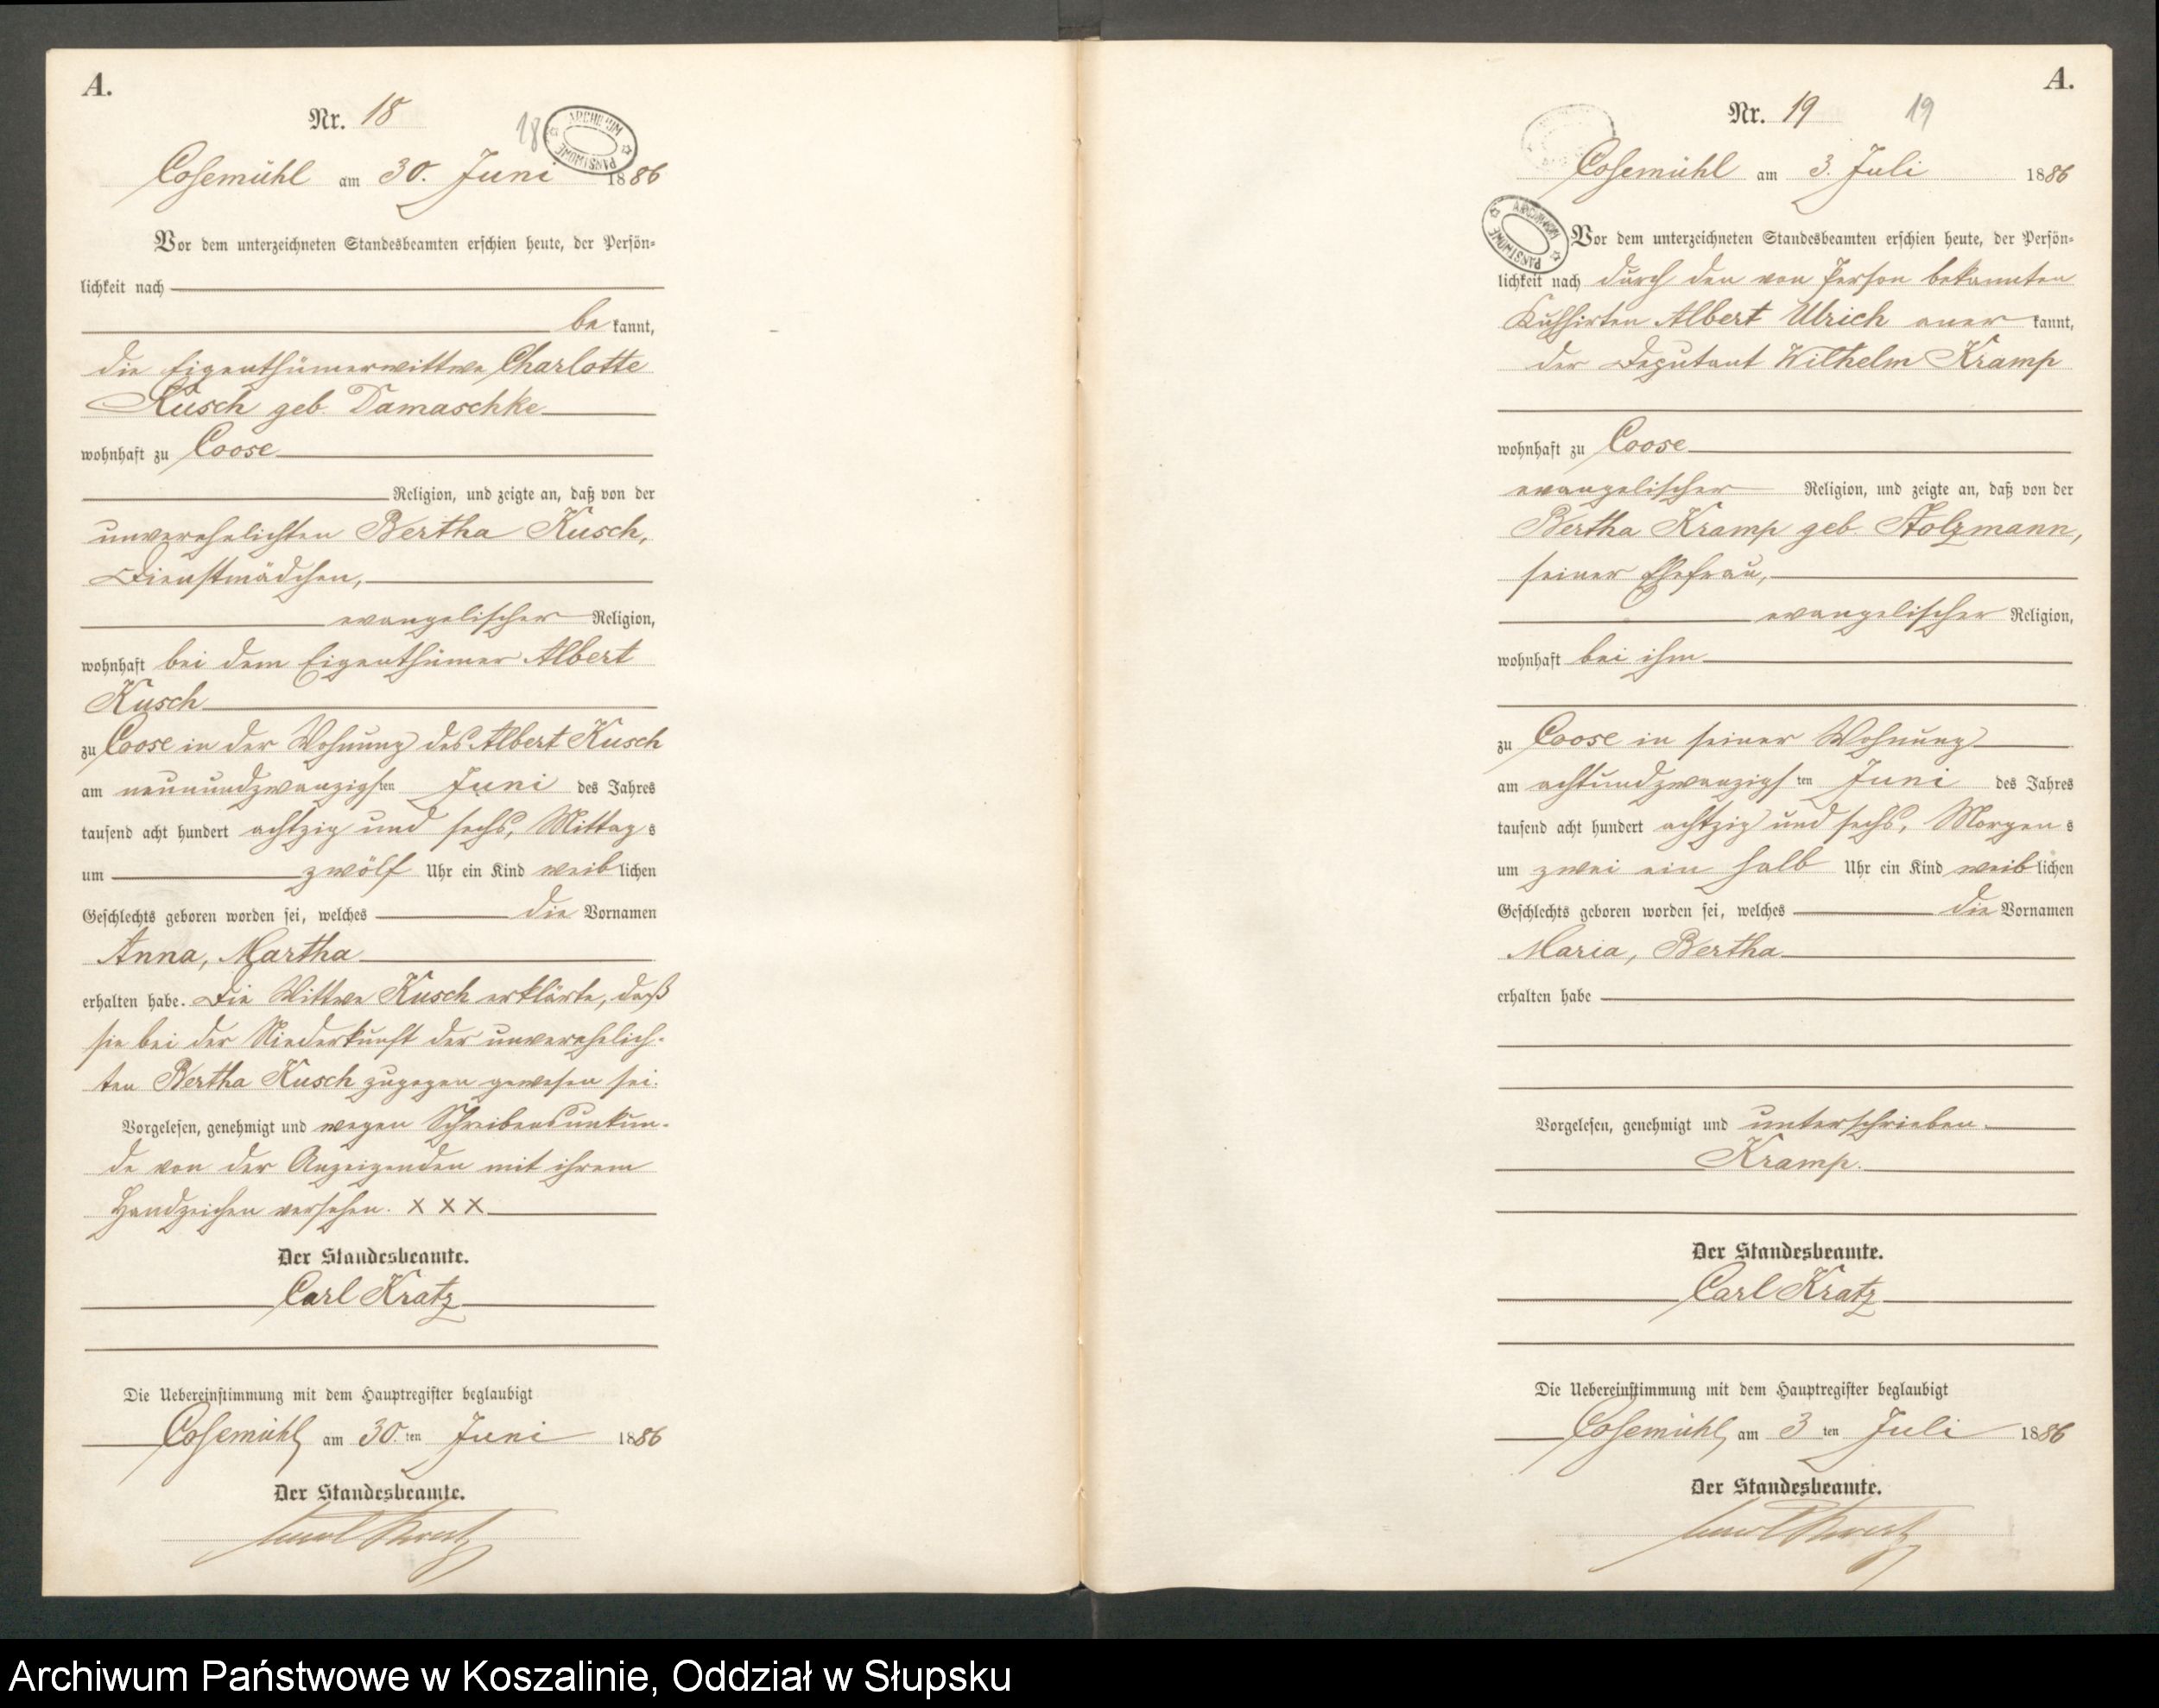 A.
Nr. 18
18
ARCHIWUM PAŃSTWOWE
Cosemühl am 30. Juni 1886
Vor dem unterzeichneten Standesbeamten erschien heute, der Persön-
lichkeit nach
bekannt,
die Eigenthümerwittwe Charlotte
Kusch geb. Damaschke
wohnhaft zu Coose
Religion, und zeigte an, daß von der
unverehelichten Bertha Kusch,
Dienstmädchen,
evangelischer Religion,
wohnhaft bei dem Eigenthümer Albert
Kusch
zu Coose in der Wohnung des Albert Kusch
am neunundzwanzigsten Juni des Jahres
tausend acht hundert achtzig und sechs, Mittags
um zwölf Uhr ein Kind weiblichen
Geschlechts geboren worden sei, welches die Vornamen
Anna, Martha
erhalten habe. Die Wittwe Kusch erklärte, daß
sie bei der Niederkunft der unverehelich-
ten Bertha Kusch zugegen gewesen sei.
Vorgelesen, genehmigt und wegen Schreibensunkun-
de von der Anzeigenden mit ihrem
Handzeichen versehen. x x x
Der Standesbeamte.
Carl Kratz
Die Uebereinstimmung mit dem Hauptregister beglaubigt
Cosemühl, am 30.ten Juni 1886
Der Standesbeamte.
Carl Kratz
A.
Nr. 19
19
Cosemühl am 3. Juli 1886
ARCHIWUM PAŃSTWOWE
Vor dem unterzeichneten Standesbeamten erschien heute, der Persön-
lichkeit nach durch den von Person bekannten
Kuhhirten Albert Ulrich anerkannt,
der Deputant Wilhelm Kramp
wohnhaft zu Coose
evangelischer Religion, und zeigte an, daß von der
Bertha Kramp geb. Stolzmann,
seiner Ehefrau,
evangelischer Religion,
wohnhaft bei ihm
zu Coose in seiner Wohnung
am achtundzwanzigsten Juni des Jahres
tausend acht hundert achtzig und sechs, Morgens
um zwei ein halb Uhr ein Kind weiblichen
Geschlechts geboren worden sei, welches die Vornamen
Maria, Bertha
erhalten habe
Vorgelesen, genehmigt und unterschrieben.
Kramp.
Der Standesbeamte.
Carl Kratz
Die Uebereinstimmung mit dem Hauptregister beglaubigt
Cosemühl, am 3ten Juli 1886
Der Standesbeamte.
Carl Kratz
Archiwum Państwowe w Koszalinie, Oddział w Słupsku